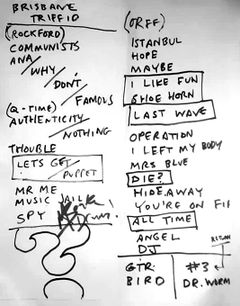 BRISBANE
TRIFFID
(ROCKFORD)
COMMUNISTS
ANA
WHY
DON'T
FAMOUS
(Q-TIME)
AUTHENTICITY
NOTHING
TROUBLE
LETS GET
PUPPET
MR ME
MUSIC JAIL
SPY
??
(ORFF)
ISTANBUL
HOPE
MAYBE
I LIKE FUN
SHOE HORN
LAST WAVE
OPERATION
I LEFT MY BODY
MRS BLUE
DIE?
HIDEAWAY
YOU'RE ON FIF
ALL TIME
ANGEL
DJ
RETURN
GTR:
BIRD
#3
DR. WORM